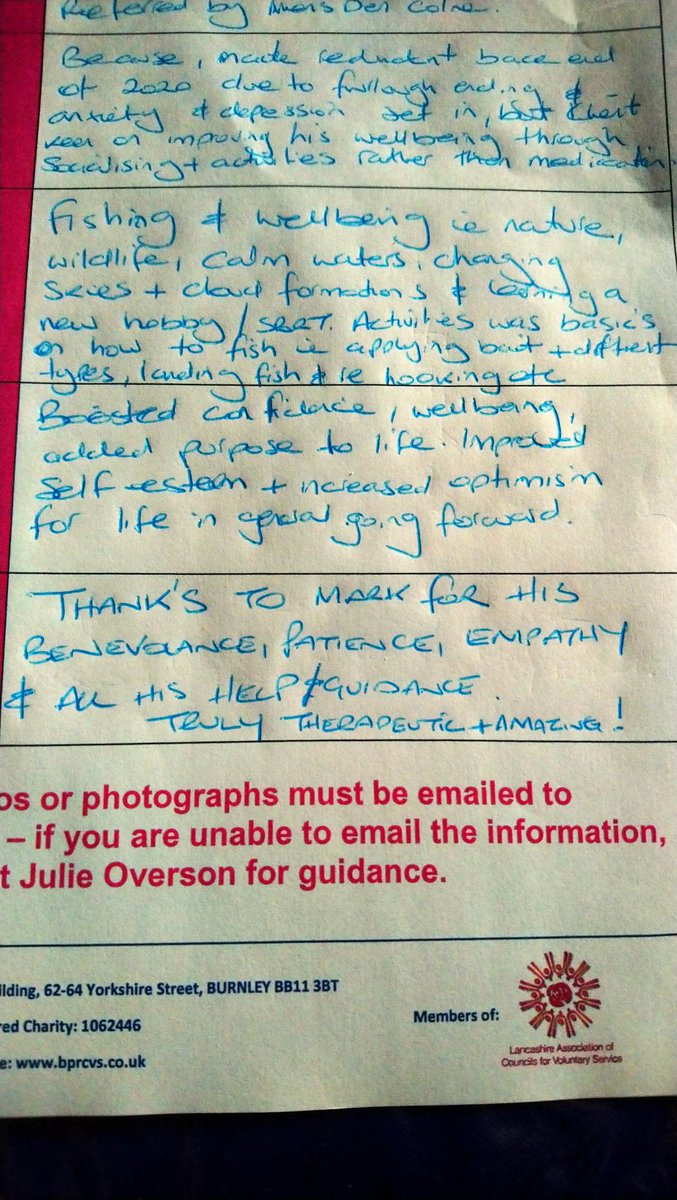 Referred by Men's Den Colne.
Because, made redundent back end
of 2020 due to furlough ending &
anxiety & depression set in, but client
keen on improving his wellbeing through
Socialising + activities rather then medication.
Fishing & wellbeing ie nature,
wildlife, calm waters, changing
Skies + cloud formations & learning a
new hobby / SPORT. Activities was basic's
on how to fish ie applying bait + different
types, landing fish & re hooking etc
Boosted confidence, wellbeing,
added purpose to life. Improved
Self-esteem + increased optimism
for life in general going forward.
THANK'S TO MARK FOR HIS
BENEVOLANCE, PATIENCE, EMPATHY
& ALL HIS HELP & GUIDANCE.
TRULY THERAPEUTIC + AMAZING!
os or photographs must be emailed to
– if you are unable to email the information,
t Julie Overson for guidance.
ilding, 62-64 Yorkshire Street, BURNLEY BB11 3BT
red Charity: 1062446
Members of:
e: www.bprcvs.co.uk
Lancashire Association of
Councils for Voluntary Service